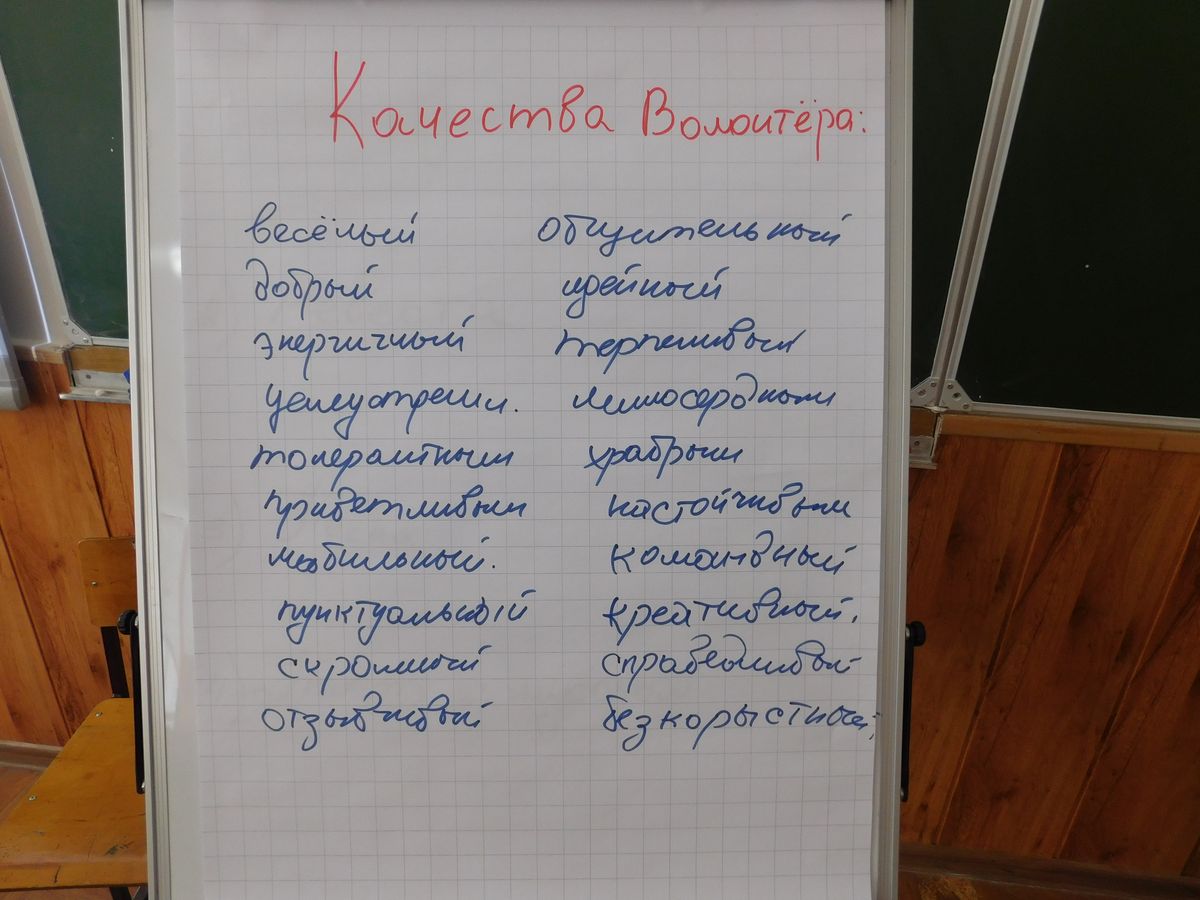 Качества Волонтёра:
весёлый общительный
добрый идейный
энергичный терпеливый
целеустремл. милосердный
толерантный храбрый
приветливый настойчивый
мобильный. командный
пунктуальный креативный.
скромный справедливый
отзывчивый безкорыстный,